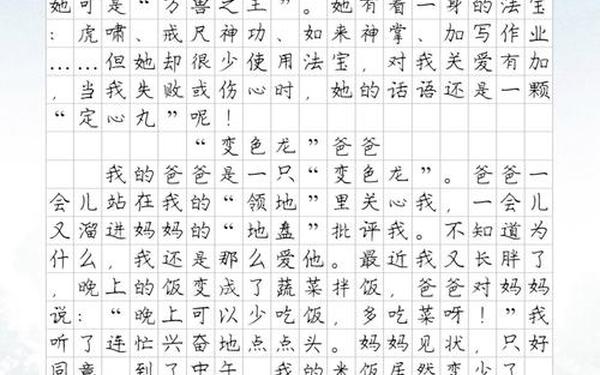 她可是“万兽之王”。她有着一身的法宝
：虎啸、戒尺神功、如来神掌、加写作业
……但她却很少使用法宝，对我关爱有加
，当我失败或伤心时，她的话语还是一颗
“定心丸”呢！
“变色龙”爸爸
我的爸爸是一只“变色龙”。爸爸一
会儿站在我的“领地”里关心我，一会儿
又溜进妈妈的“地盘”批评我。不知道为
什么，我还是那么爱他。最近我又长胖了
，晚上的饭变成了蔬菜拌饭，爸爸对妈妈
说：“晚上可以少吃饭，多吃菜呀！”我
听了连忙兴奋地点点头。妈妈见状，只好
同意。到了中午，我的米饭居然变少了